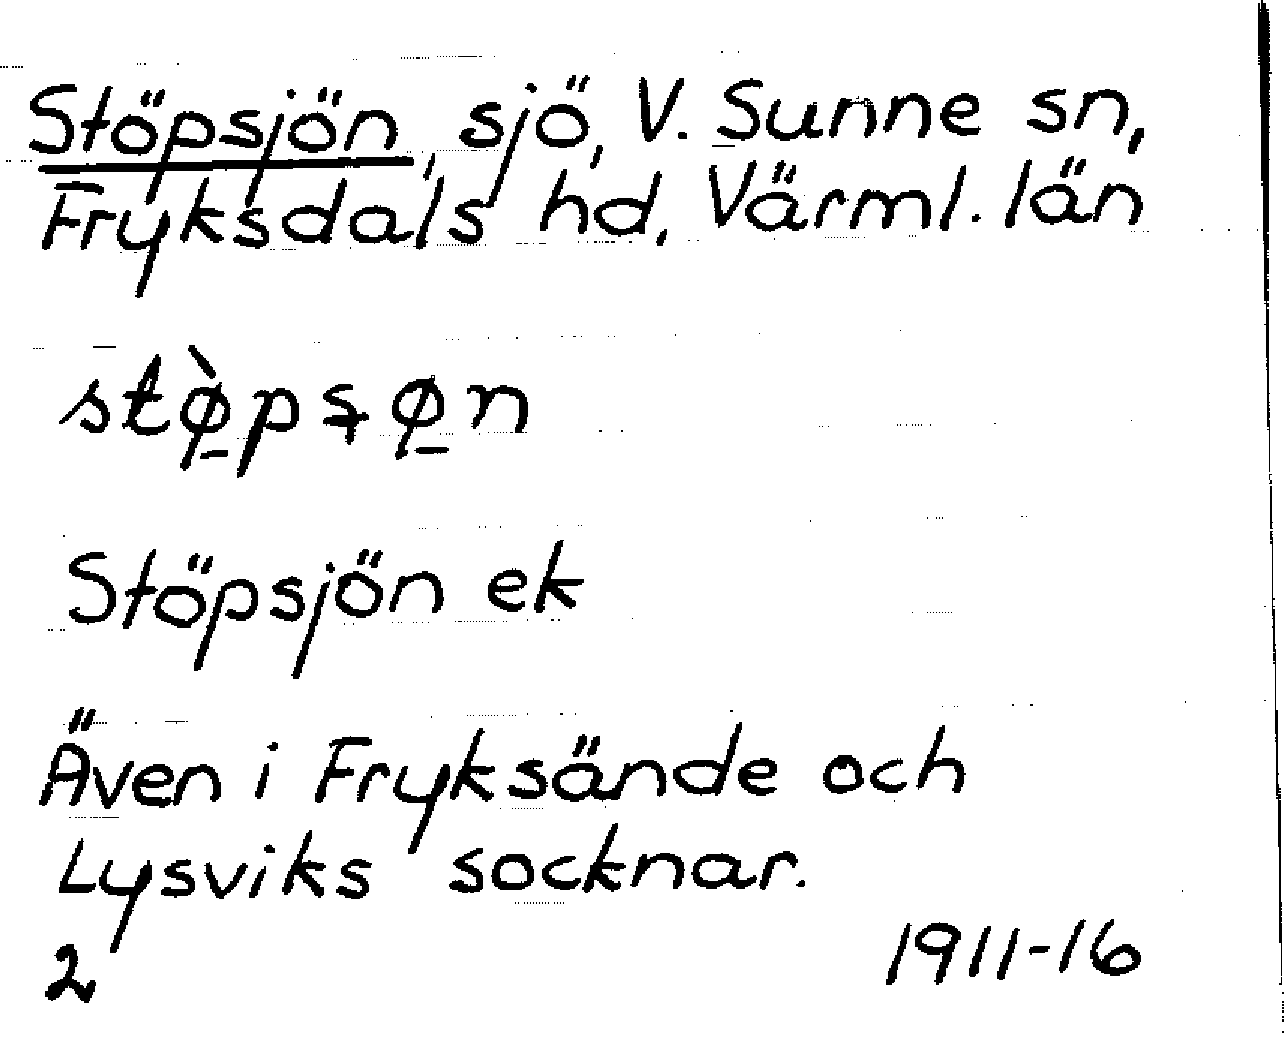 Stöpsjön, sjö, V. Sunne sn,
Fryksdals hd, Värml. län
stø̠̀psø̠n
Stöpsjön ek
Även i Fryksände och
Lysviks socknar.
2 1911-16